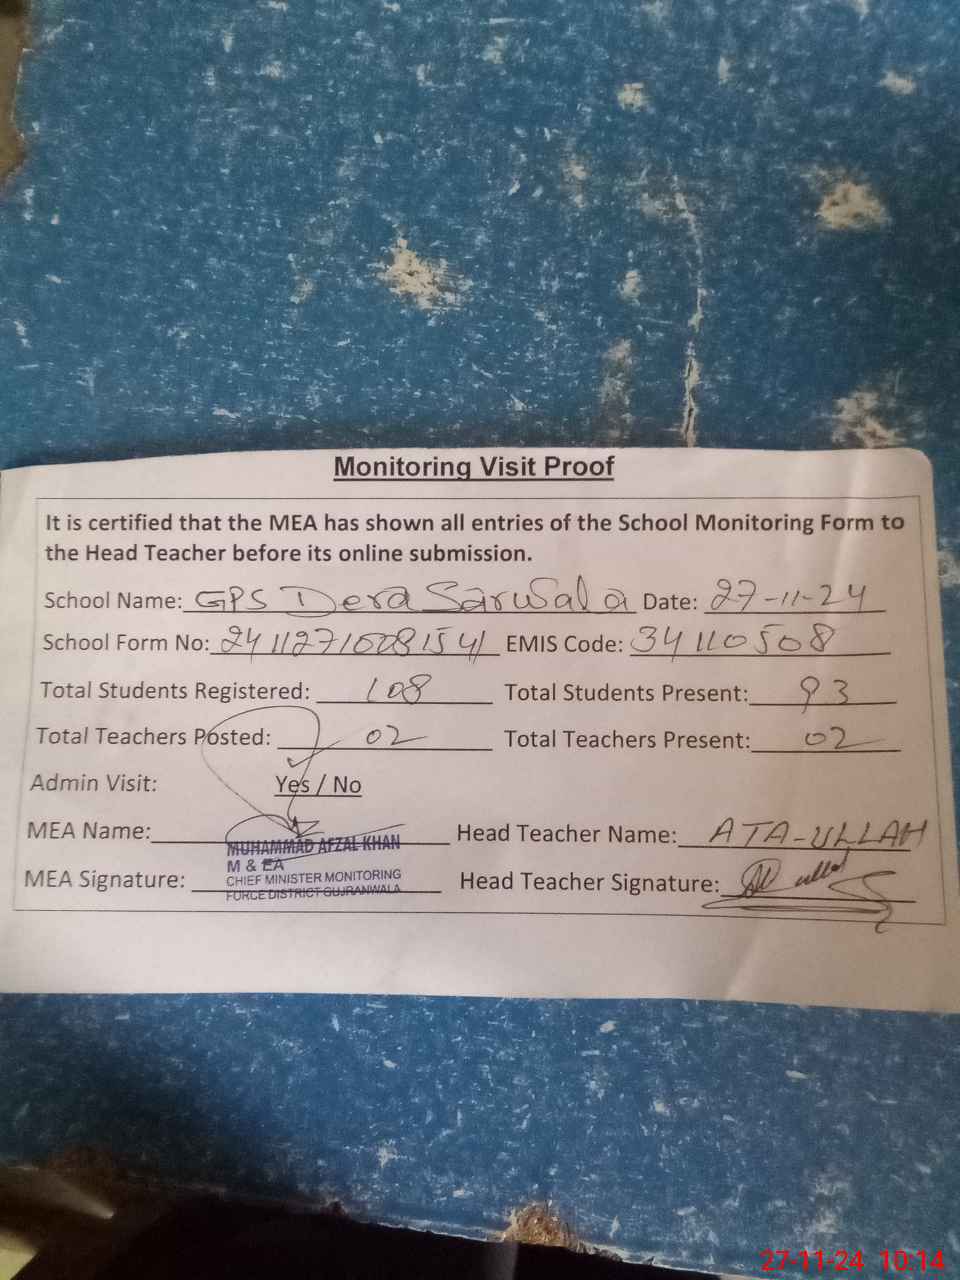 Monitoring Visit Proof
It is certified that the MEA has shown all entries of the School Monitoring Form to
the Head Teacher before its online submission.
School Name: GPS Dera Sarwala Date: 27-11-24
School Form No: EMIS Code: 34110508
Total Students Registered: 108 Total Students Present: 93
Total Teachers Posted: 02 Total Teachers Present: 02
Admin Visit: Yes / No
MEA Name: MUHAMMAD AFZAL KHAN Head Teacher Name: ATA-ULLAH
M & EA
MEA Signature: CHIEF MINISTER MONITORING Head Teacher Signature:
FORCE DISTRICT GUJRANWALA
27-11-24 10:14